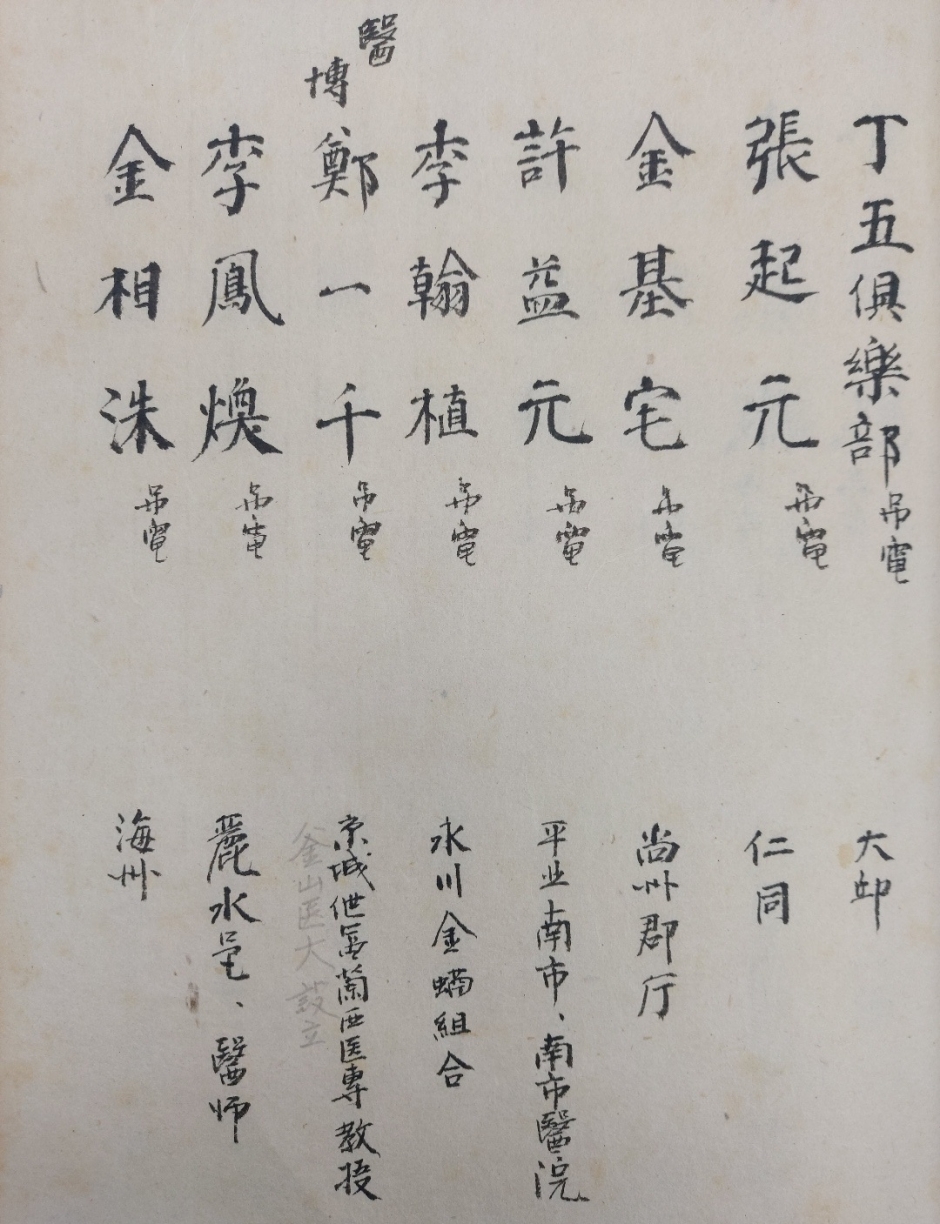 丁五俱樂部 吊電 大邱
張起元 吊電 仁同
金基宅 吊電 尚州郡庁
許益元 吊電 平北南市、南市醫院
李翰植 吊電 永川金融組合
醫博 鄭一千 吊電 京城世富蘭西医専教授
釜山医大 設立
李鳳煥 吊電 麗水邑、醫师
金相洙 吊電 海州